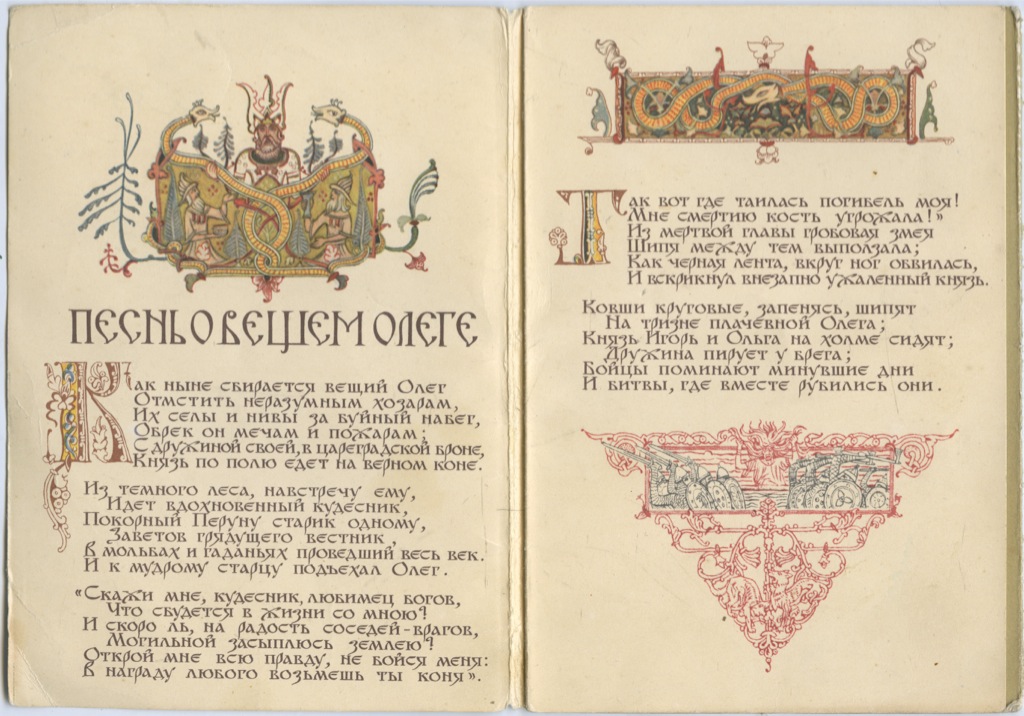 ПЕСНЬ О ВЕЩЕМ ОЛЕГЕ
Как ныне сбирается вещий Олег
Отмстить неразумным хозарам,
Их селы и нивы за буйный набег,
Обрек он мечам и пожарам;
С дружиной своей, в цареградской броне,
Князь по полю едет на верном коне.
Из темного леса, навстречу ему,
Идет вдохновенный кудесник,
Покорный Перуну старик одному,
Заветов грядущего вестник,
В мольбах и гаданьях проведший весь век.
И к мудрому старцу подъехал Олег.
«Скажи мне, кудесник, любимец богов,
Что сбудется в жизни со мною?
И скоро ль, на радость соседей-врагов,
Могильной засыплюсь землею?
Открой мне всю правду, не бойся меня:
В награду любого возьмешь ты коня».
Так вот где таилась погибель моя!
Мне смертию кость угрожала!»
Из мертвой главы гробовая змея
Шипя между тем выползала;
Как черная лента, вкруг ног обвилась,
И вскрикнул внезапно ужаленный князь.
Ковши круговые, запенясь, шипят
На тризне плачевной Олега;
Князь Игорь и Ольга на холме сидят;
Дружина пирует у брега;
Бойцы поминают минувшие дни
И битвы, где вместе рубились они.